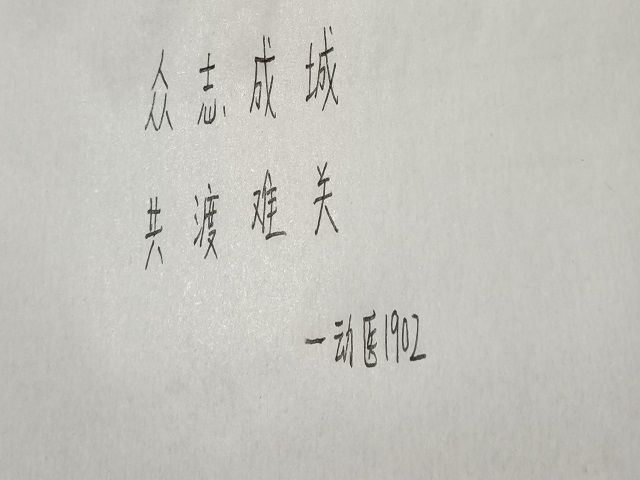 众志成城
共渡难关
一动医1902